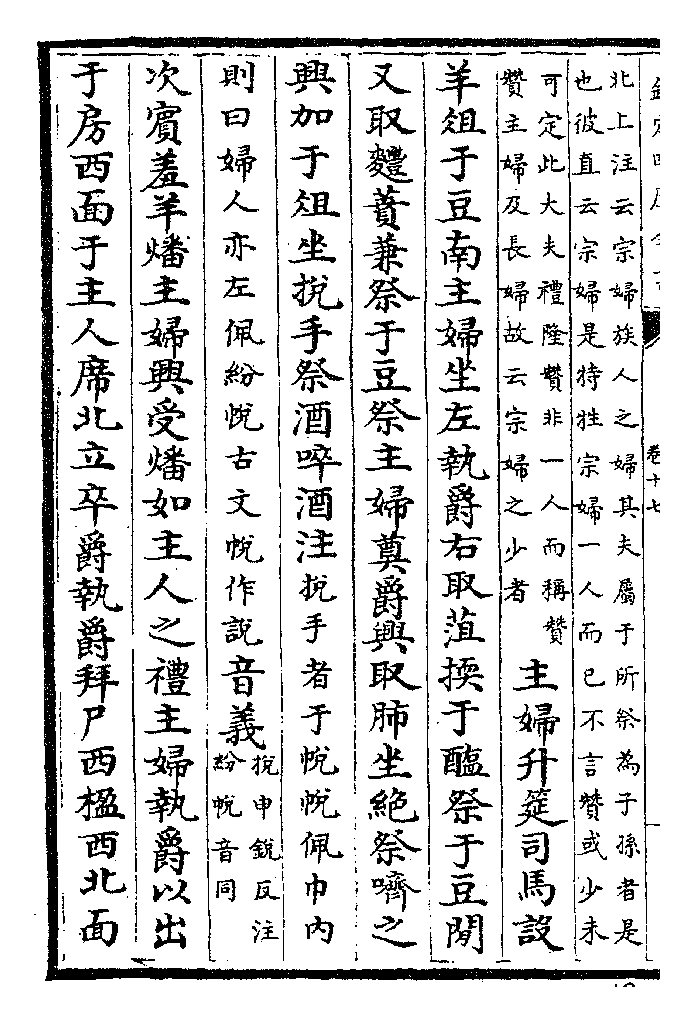 卷十七
北上注云宗婦族人之婦其夫屬于所祭為子孫者是
也彼直云宗婦是特牲宗婦一人而已不言贊或少未
可定此大夫禮隆贊非一人而稱贊
贊主婦及長婦故云宗婦之少者
主婦升筵司馬設
羊俎于豆南主婦坐左執爵右取菹㨎于醢祭于豆閒
又取麷蕡兼祭于豆祭主婦奠爵興取肺坐絕祭嚌之
興加于俎坐挩手祭酒啐酒注挩手者于帨帨佩巾内
則曰婦人亦左佩紛帨古文帨作說音義
挩申銳反注
紛帨音同
次賓羞羊燔主婦興受燔如主人之禮主婦執爵以出
于房西面于主人席北立卒爵執爵拜尸西楹西北面